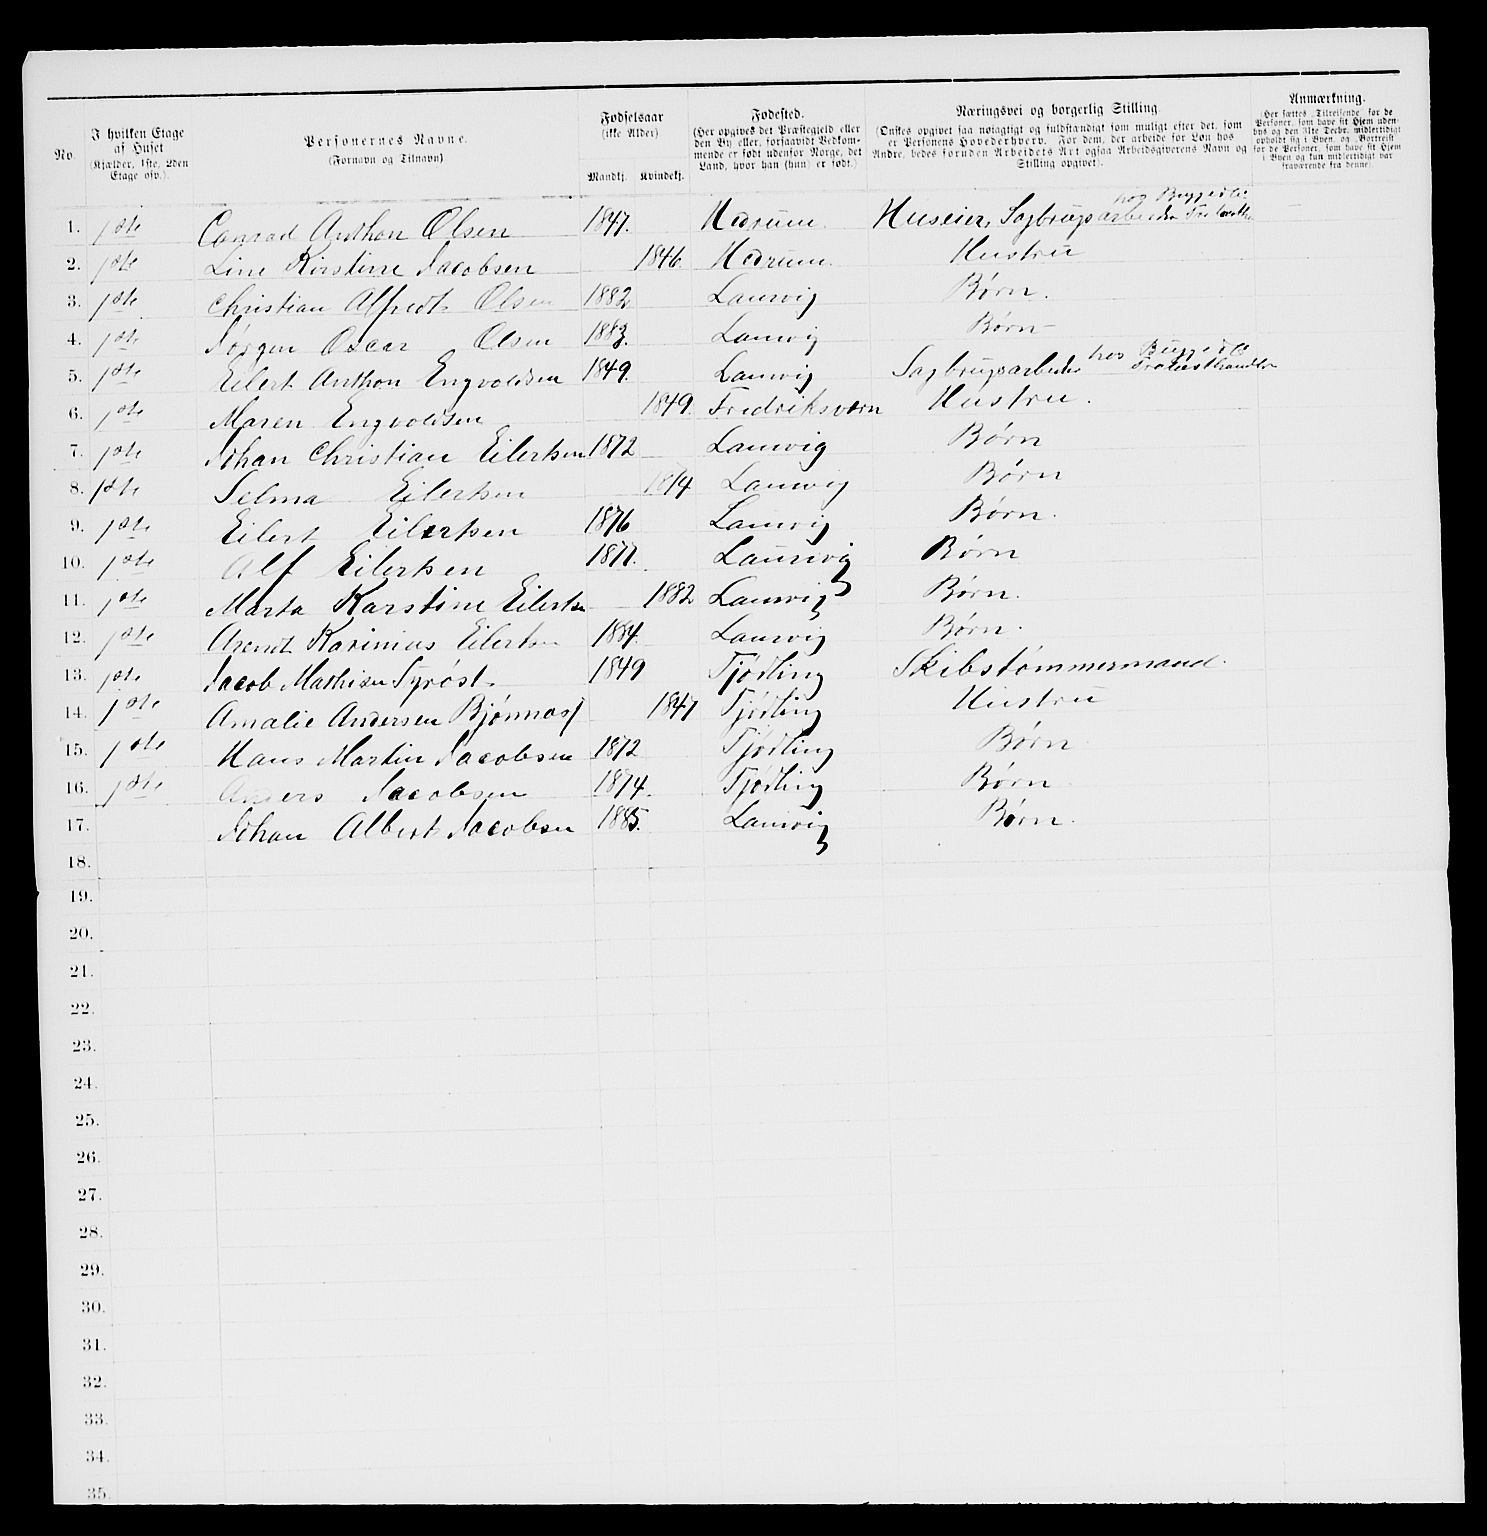 No.
I hvilken Etage
af Huset
(Kjælder, 1ste, 2den
Etage osv.).
Personernes Navne.
(Fornavn og Tilnavn)
Fødselsaar
(ikke Alder)
Mandkj. Kvindekj.
Fødested.
(Her opgives det Præstegjeld eller
den By eller, forsaavidt Vedkom-
mende er født udenfor Norge, det
Land, hvor han (hun) er født.)
Næringsvei og borgerlig Stilling.
(Ønskes opgivet saa nøiagtigt og fuldstændigt som muligt efter det, som
er Personens Hovederhverv. For dem, der arbeide for Løn hos
Andre, bedes foruden Arbeidets Art ogsaa Arbeidsgiverens Navn og
Stilling opgivet).
Anmærkning.
(Her sættes „Tilreisende“ for de
Personer, som have sit Hjem uden-
bys og den 31te Decbr. midlertidigt
opholdt sig i Byen, og „Bortreist“
for de Personer, som have sit Hjem
i Byen og kun midlertidigt var
fraværende fra denne)
hos
1. 1ste Conrad Anthon Olsen 1847. Hedrum. Huseier, Sagbrugsarbeider
2. 1ste Line Kirstine Jacobsen 1846. Hedrum. Hustru
3. 1ste Christian Alfredt Olsen 1882 Laurvig Børn.
4. 1ste Jørgen Oscar Olsen 1883. Laurvig Børn
hos
5. 1ste Eilert Anthon Engvoldsen 1849. Laurvig Sagbrugsarbeider Trælasthandler
6. 1ste Maren Engvoldsen 1849. Fredriksværn Hustru.
7. 1ste Johan Christian Eilertsen 1872 Laurvig Børn
8. 1ste Selma Eilertsen 1874 Laurvig Børn
9. 1ste Eilert Eilertsen 1876 Laurvig Børn.
10. 1ste Alf Eilertsen 1877. Laurvig Børn
11. 1ste Marta Karstine Eilertsen 1882 Laurvig Børn.
12. 1ste Arendt Karinius Eilertsen 1884. Laurvig Børn.
13. 1ste Jacob Mathisen 1849 Tjødling Skibstømmermand.
14. 1ste Amalie Andersen Bjønnes 1847 Tjødling Hustru
15. 1ste Hans Martin Jacobsen 1872 Tjødling Børn
16. 1ste Anders Jacobsen 1874. Tjødling Børn
17. Johan Albert Jacobsen 1885. Laurvig Børn.
18.
19.
20.
21.
22.
23.
24.
25.
26.
27.
28.
29.
30.
31.
32.
33.
34.
35.